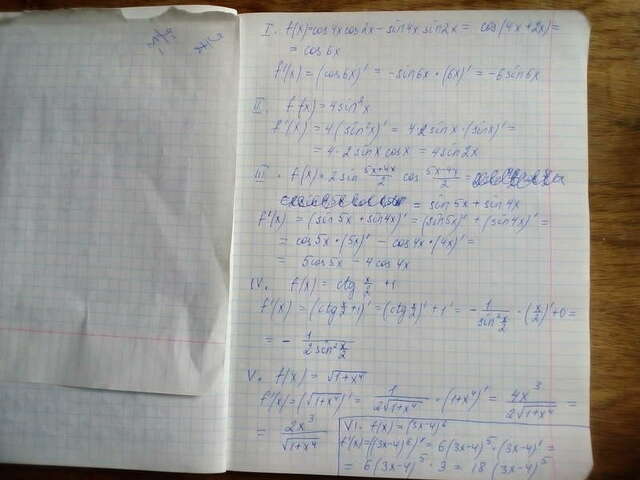 I. f(x)=cos4xcos2x-sin4x sin2x= cos(4x+2x)=
= cos6x
f'(x)=(cos6x)'= -sin6x·(6x)'= -6sin6x
II. f(x)=4sin²x
f'(x)=4(sin²x)'= 4·2sinx·(sinx)'=
= 4·2sinx cosx= 4sin2x
III. f(x)=2sin (5x+4x)/2 cos (5x-4x)/2 =
= sin5x+sin4x
f'(x) = (sin5x+sin4x)'=(sin5x)'+(sin4x)'=
= cos5x·(5x)' - cos4x·(4x)'=
= 5cos5x-4cos4x
IV. f(x)= ctg x/2 +1
f'(x)=(ctg x/2+1)'=(ctg x/2)'+1'= -1/sin² x/2 ·(x/2)'+0=
= - 1/2sin² x/2
V. f(x)= √1+x⁴
f'(x)=(√1+x⁴)'= 1/2√1+x⁴ ·(1+x⁴)'= 4x³/2√1+x⁴ =
= 2x³/√1+x⁴
VI. f(x)=(3x-4)⁶
f'(x)=((3x-4)⁶)'= 6(3x-4)⁵·(3x-4)'=
= 6(3x-4)⁵·3= 18(3x-4)⁵